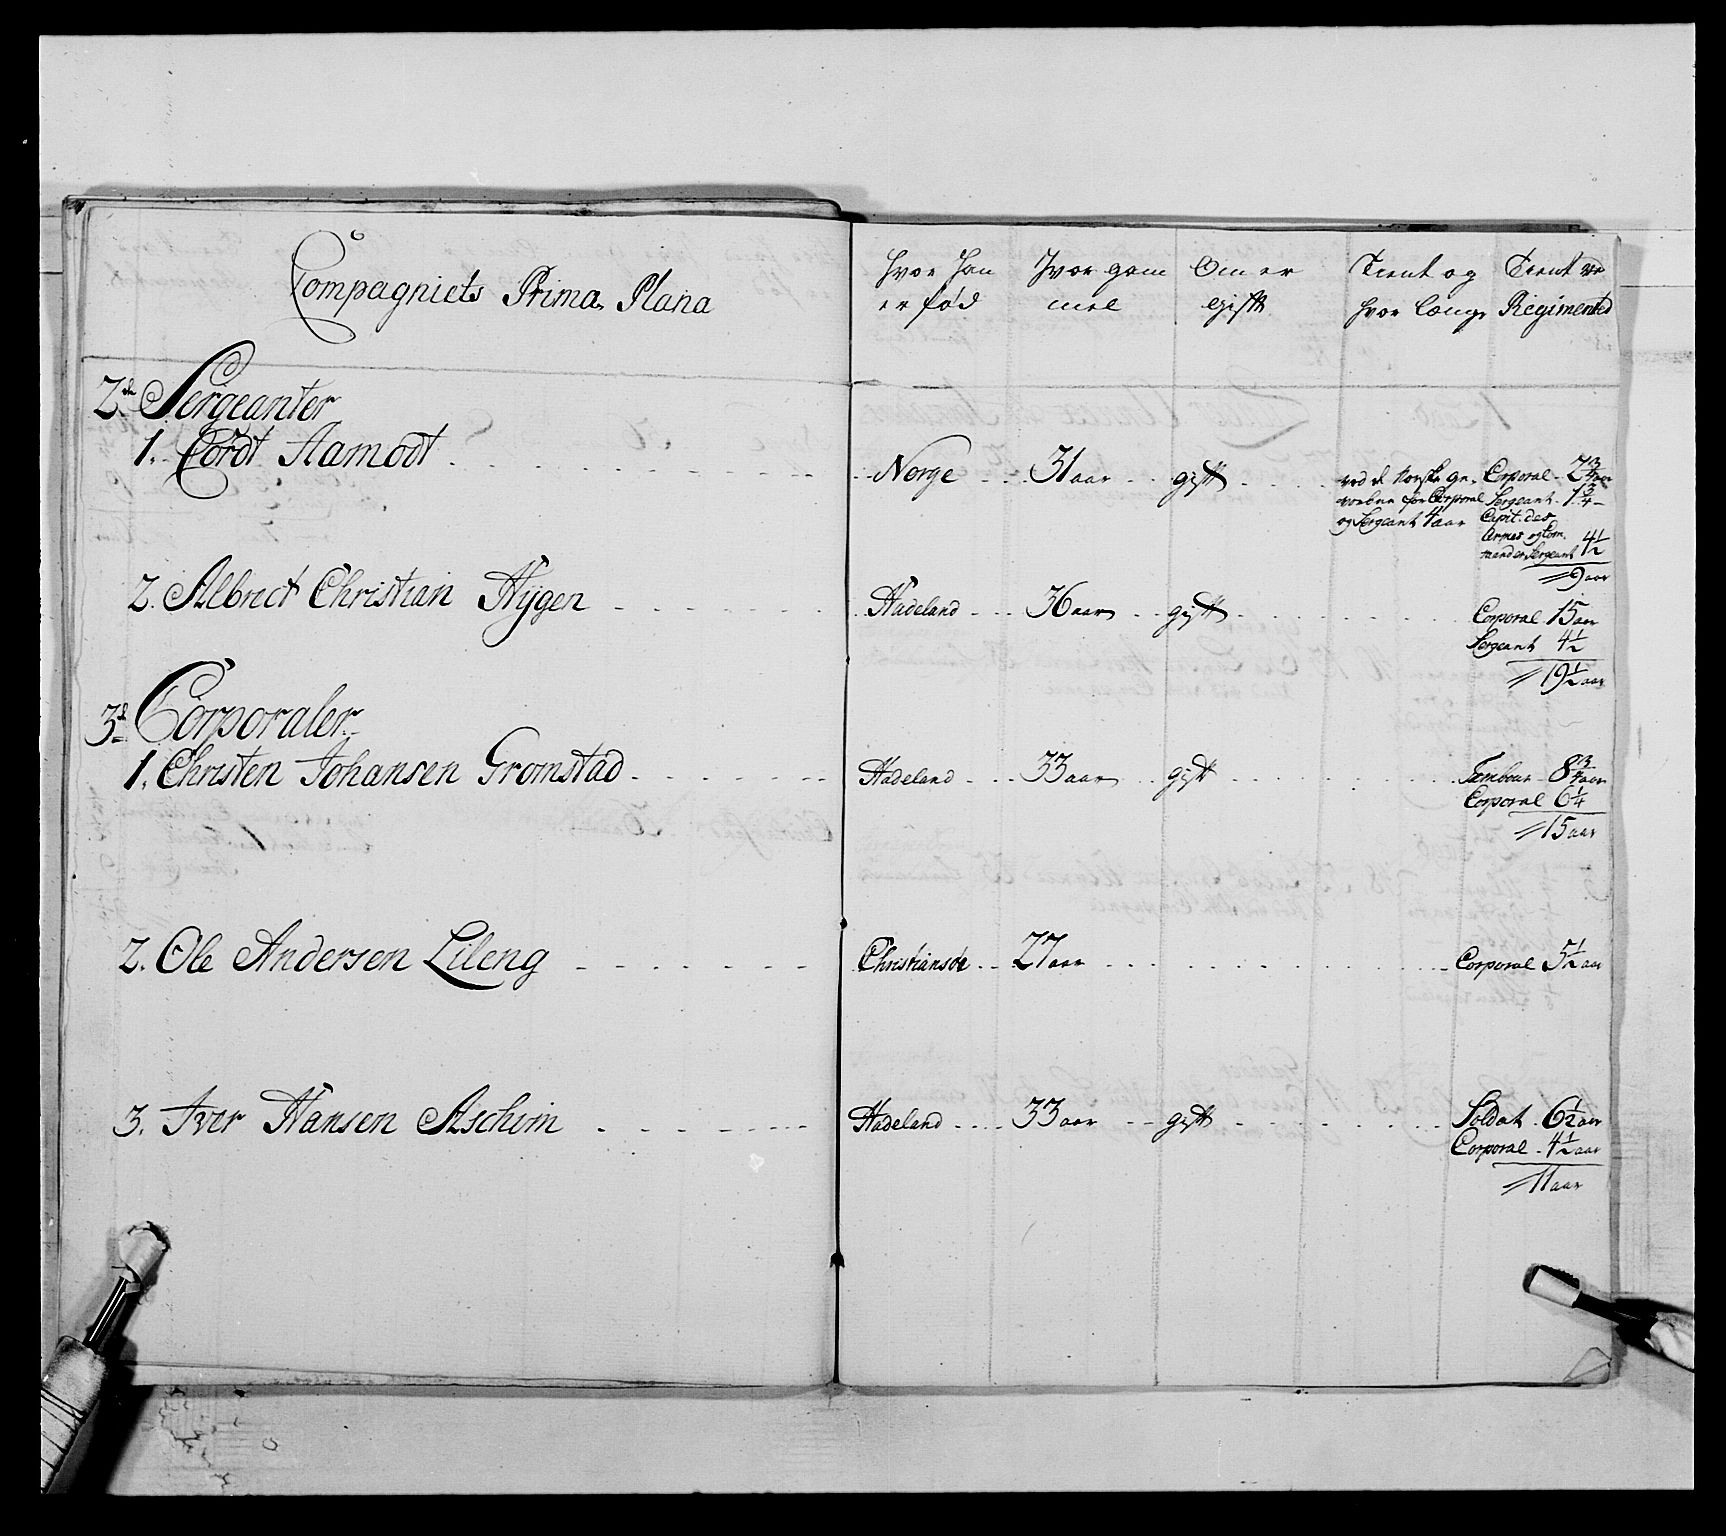 Compagniets Prima Plana
Hvor han er fød
Hvor gam mel
Om er gift
Tient og hvor længe
Tient ved Regimented
2de Sergeanter
1. Cordt Aamodt Norge 31 aar gift
ved de Norske ge-
vorbne for Corporal
og Sergeant 4 aar
Corporal 2 3/4 aar
Sergeant 1 3/4
Capit: des
Armes og Com
mander Sergeant 4 1/2
9 aar
2. Albrect Christian Hÿgen Hadeland 36 aar gift Corporal 15 aar
Sergeant 4 1/2
19 1/2 aar
3de Corporaler
1. Christen Johansen Gromstad Hadeland 33 aar gift Tambour 8 3/4 aar
Corporal 6 1/4
15 aar
2. Ole Andersen Lileng Christiansde 27 aar Corporal 5 1/2 aar
3. Iver Hansen Aschim Hadeland 33 aar gift Soldat 6 1/2 aar
Corporal 4 1/2 aar
11 aar